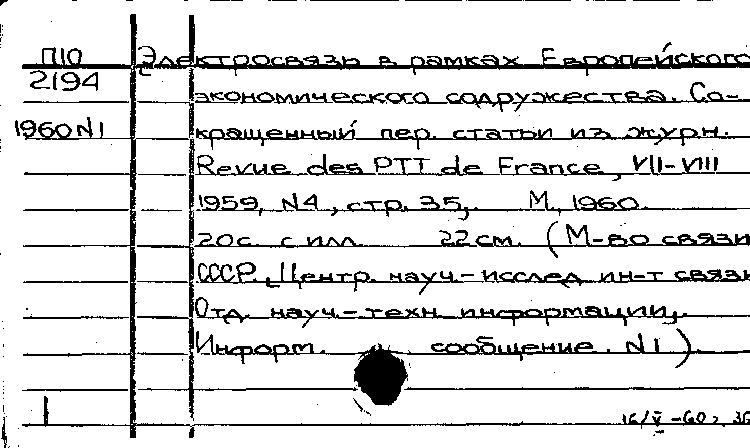 П10 Электросвязь в рамках Европейского
2194 экономического содружества. Со-
1960 N1 кращенный пер. статьи из журн.
Revue des PTT de France, VII-VIII
1959, N4, стр. 35, М, 1960.
20с. с илл. 22см. (М-во связи
СССР. Центр. науч.-исслед ин-т связи
Отд. науч.-техн. информации,
Информ. сообщение. N1).
16/V-60г.